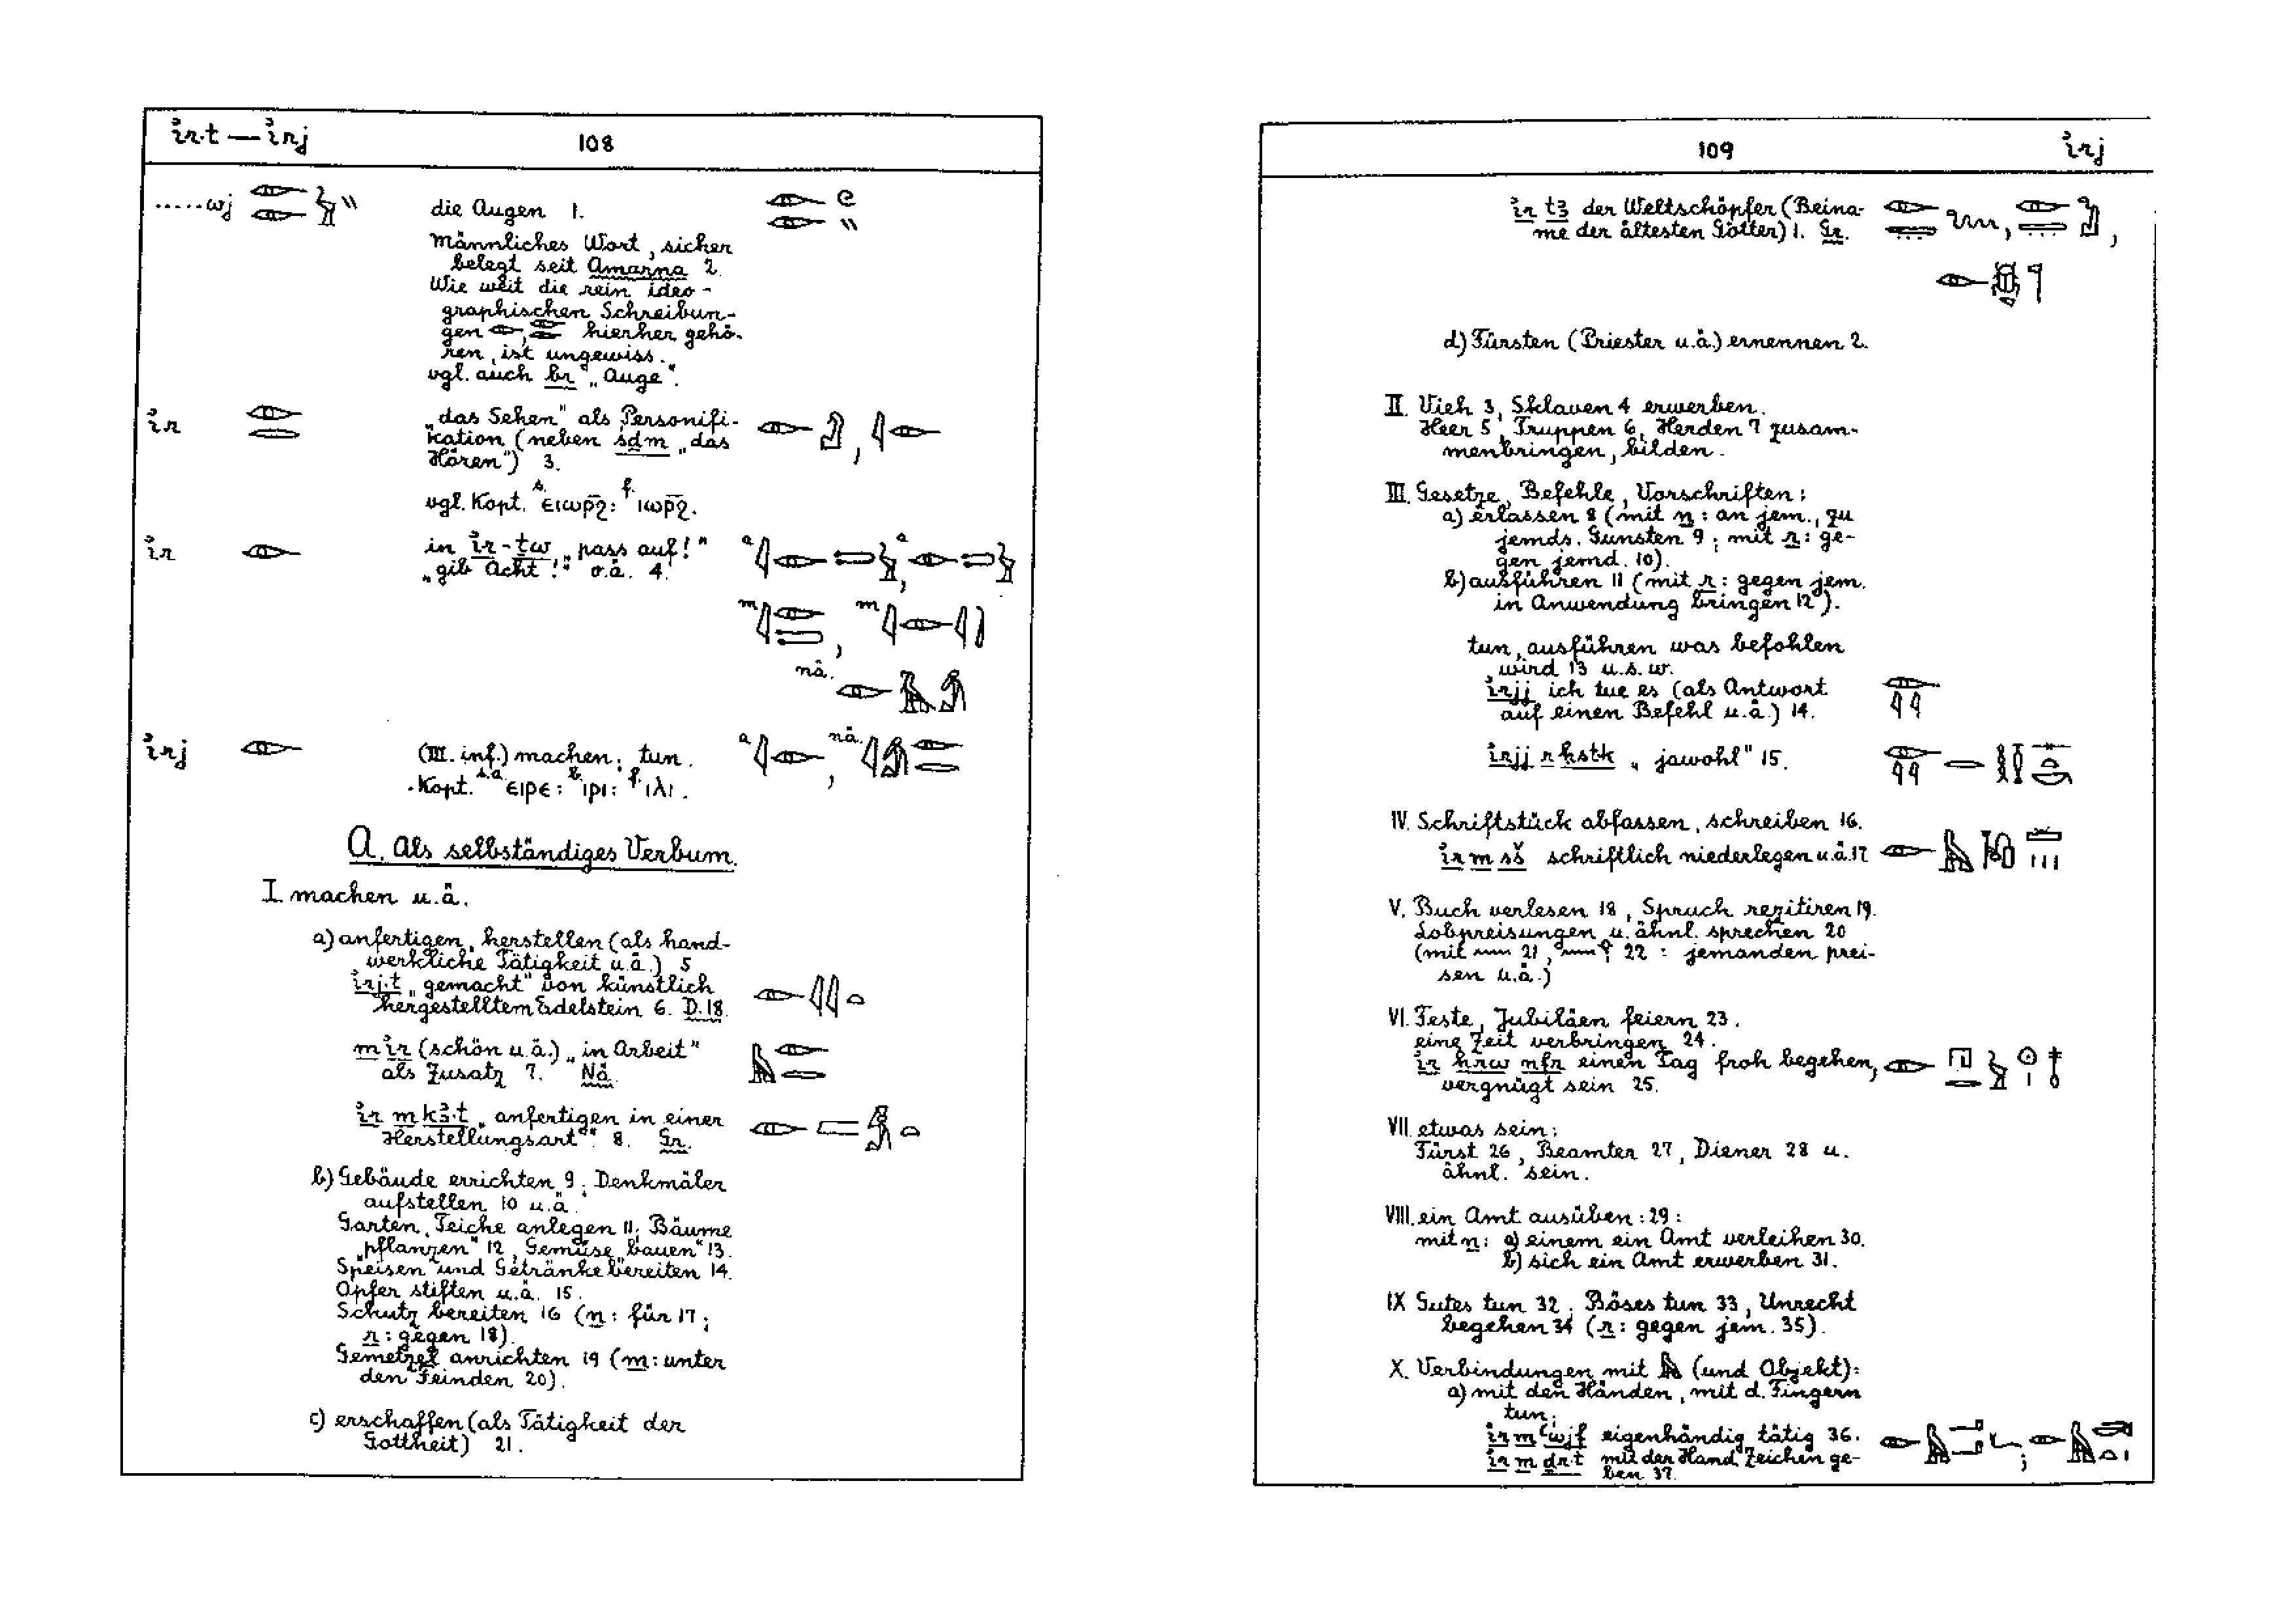 ı͗r·t — ı͗rj 108
.....wj 𓁹𓁹𓅱𓏭 die Augen 1.
männliches Wort, sicher
belegt seit Amarna 2.
Wie weit die rein ideo-
graphischen Schreibun-
gen 𓁹, 𓁹𓁹 hierher gehö-
ren, ist ungewiss.
vgl. auch br „Auge".
ı͗r 𓁹𓂋 „das Sehen" als Personifi-
kation (neben sḏm „das
Hören") 3.
vgl. Kopt. s. ⲉⲓⲱⲣϩ̅: f. ⲓⲱⲣϩ̅.
ı͗r 𓁹 in ı͗r-ṯw „pass auf!"
„gib Acht!" o.ä. 4.
ı͗rj 𓁹 (III. inf.) machen; tun.
Kopt. s.a. ⲉⲓⲣⲉ: b. ⲓⲣⲓ: f. ⲓⲗⲓ.
A. Als selbständiges Verbum.
I. machen u.ä.
a) anfertigen, herstellen (als hand-
werkliche Tätigkeit u.ä.) 5
ı͗rj·t „gemacht" von künstlich
hergestelltem Edelstein 6. D.18.
m ı͗r (schön u.ä.) „in Arbeit"
als Zusatz 7. Nä.
ı͗r m kꜣ·t „anfertigen in einer
Herstellungsart" 8. Gr.
b) Gebäude errichten 9; Denkmäler
aufstellen 10 u.ä.
Garten, Teiche anlegen 11; Bäume
„pflanzen" 12, Gemüse „bauen" 13.
Speisen und Getränke bereiten 14.
Opfer stiften u.ä. 15.
Schutz bereiten 16 (n: für 17;
r: gegen 18).
Gemetzel anrichten 19 (m: unter
den Feinden 20).
c) erschaffen (als Tätigkeit der
Gottheit) 21.
109 ı͗rj
ı͗r tꜣ der Weltschöpfer (Beina-
me der ältesten Götter) 1. Gr.
d) Fürsten (Priester u.ä.) ernennen 2.
II. Vieh 3, Sklaven 4 erwerben.
Heer 5, Truppen 6, Herden 7 zusam-
menbringen, bilden.
III. Gesetze, Befehle, Vorschriften:
a) erlassen 8 (mit n: an jem., zu
jemds. Gunsten 9; mit r: ge-
gen jemd. 10).
b) ausführen 11 (mit r: gegen jem.
in Anwendung bringen 12).
tun, ausführen was befohlen
wird 13 u.s.w.
ı͗rjj ich tue es (als Antwort
auf einen Befehl u.ä.) 14. 𓁹𓇌
ı͗rjj r ḥst·k „jawohl" 15.
IV. Schriftstück abfassen, schreiben 16.
ı͗r m sš schriftlich niederlegen u.ä. 17
V. Buch verlesen 18, Spruch rezitiren 19.
Lobpreisungen u. ähnl. sprechen 20
(mit 𓈖 21, 22: jemanden prei-
sen u.ä.)
VI. Feste, Jubiläen feiern 23.
eine Zeit verbringen 24.
ı͗r hrw nfr einen Tag froh begehen,
vergnügt sein 25.
VII. etwas sein:
Fürst 26, Beamter 27, Diener 28 u.
ähnl. sein.
VIII. ein Amt ausüben: 29:
mit n: a) einem ein Amt verleihen 30.
b) sich ein Amt erwerben 31.
IX Gutes tun 32; Böses tun 33, Unrecht
begehen 34 (r: gegen jem. 35).
X. Verbindungen mit 𓅓 (und Objekt):
a) mit den Händen, mit d. Fingern
tun;
ı͗r m ꜥwjf eigenhändig tätig 36.
ı͗r m ḏr·t mit der Hand Zeichen ge-
ben 37.